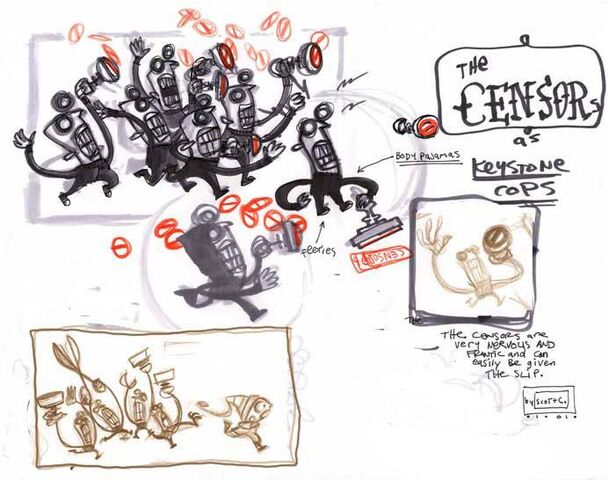 THE
CENSORS
as
KEYSTONE
COPS
BODY PAJAMAS
feeties
CENSORED
THE CENSORS are
very NERVOUS AND
FRANTIC and can
easily be given
THE SLIP.
by Scott C.